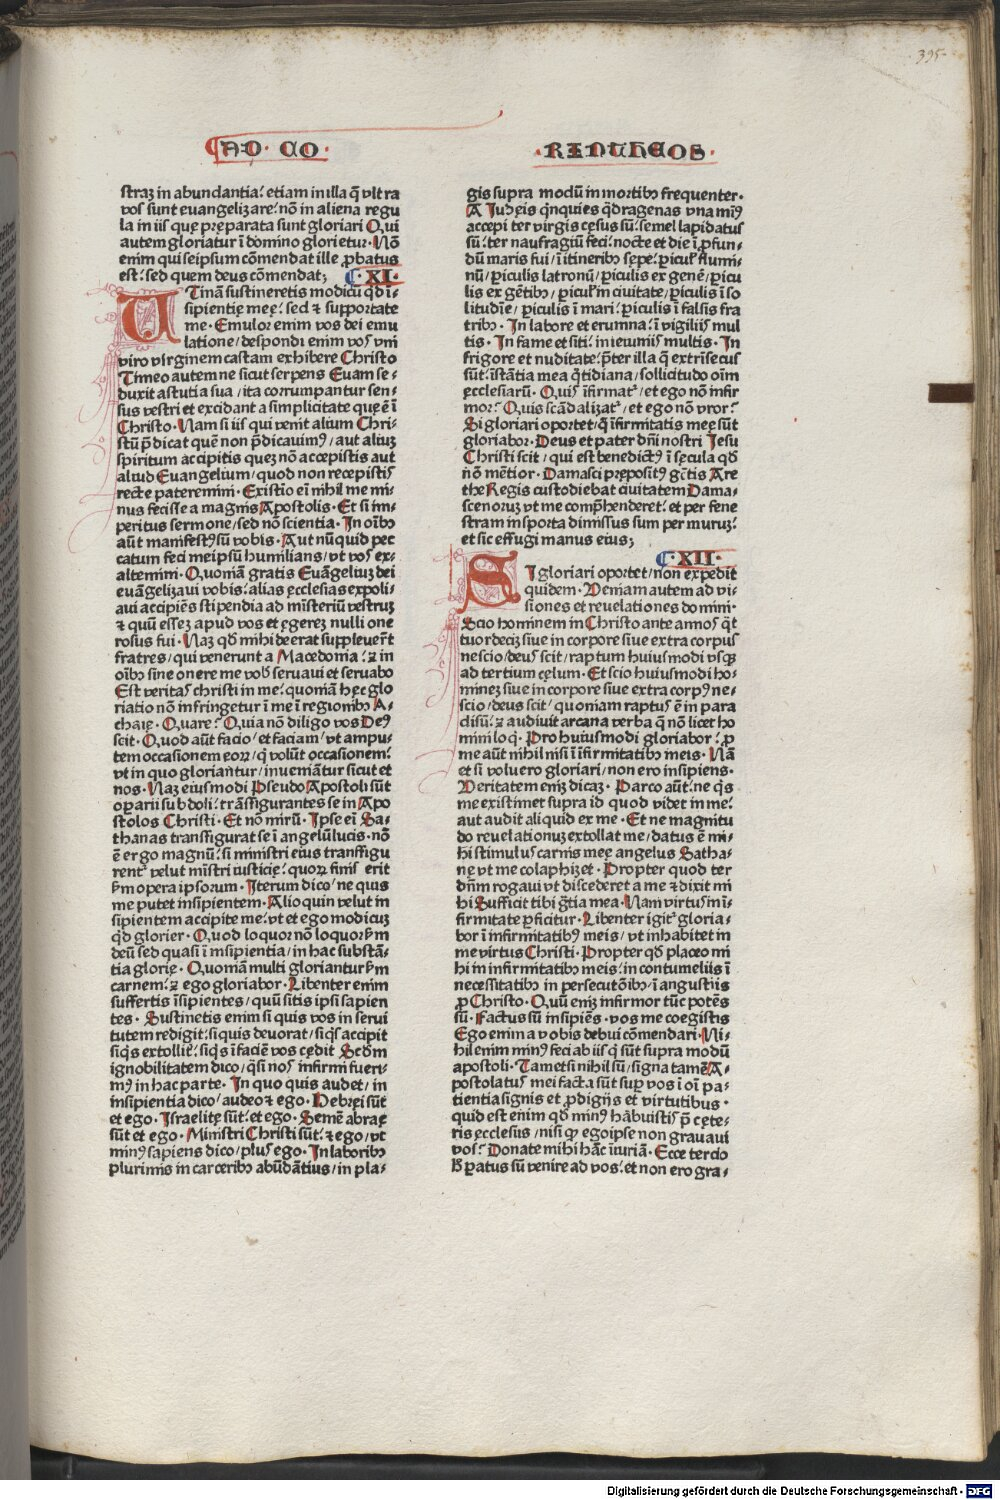 395
AD · CO ·
· RINTHEOS ·
straz in abundantia: etiam in illa q̄ vlt ra
vos sunt euangelizare: nō in aliena regu
la in iis quę pręparata sunt gloriari Qui
autem gloriatur ī domino glorietur · Nō
enim qui seipsum cōmendat ille ꝓbatus
est: sed quem deus cōmendat;
· XI ·
UTinā sustineretis modicū qd ī-
sipientię meę: sed ⁊ supportate
me · Emulor enim vos dei emu
latione / despondi enim vos vni
viro virginem castam exhibere Christo
Timeo autem ne sicut serpens Euam se-
duxit astutia sua / ita corrumpantur sen-
sus vestri et excidant a simplicitate quę ē ī
Christo · Nam si iis qui venit alium Chri-
stū p̄dicat quē non p̄dicauimꝰ / aut aliuz
spiritum accipitis quez nō accepistis aut
aliud Euangelium / quod non recepistis
recte pateremini · Existio ei nihil me mi-
nus fecisse a magnis Apostolis · Et si im-
peritus sermone / sed nō scientia · In oībꝰ
aūt manifestꝰ sū vobis · Aut nūquid pec
catum feci meipsū humilians / vt vos ex-
altemini · Quoniā gratis Euāgeliuz dei
euāgelizaui vobis: alias ęcclesias expoli-
aui accipiēs stipendia ad mīsteriū vestruz
⁊ quū essez apud vos et ęgerez nulli one
rosus fui · Naz qd mihi deerat suppleuerūt
fratres / qui venerunt a Macedonia: ⁊ in
oībꝰ sine onere me vobis seruaui et seruabo
Est veritas christi in me: quoniā hęc glo
riatio nō infringetur ī me ī regionibꝰ A-
chaię · Quare: Quia nō diligo vos Deꝰ
scit · Quod aūt facio / et faciam / vt ampu-
tem occasionem eoꝝ / q̄ volūt occasionem:
vt in quo gloriantur / inueniātur sicut et
nos · Naz eiusmodi Pseudo Apostoli sūt
oꝑarii subdoli: trāsfigurantes se in Apo
stolos Christi · Et nō mirū · Ipse ei Sa-
thanas transfigurat se ī angelū lucis · nō
ē ergo magnū: si ministri eius transfigu
rentur velut mīstri iusticię: quoꝝ finis erit
ẜm opera ipsorum · Iterum dico / ne quis
me putet insipientem · Alioquin velut in
sipientem accipite me: vt et ego modicuz
qd glorier · Quod loquor nō loquor ẜm
deū sed quasi ī insipientia / in hac substā-
tia glorię · Quoniā multi gloriantur ẜm
carnem: ⁊ ego gloriabor · Libenter enim
suffertis īsipientes / quū sitis ipsi sapien
tes · Sustinetis enim si quis vos in serui
tutem redigit: si quis deuorat / si qs accipit
si qs extollit: si qs ī faciē vos cędit Scdm
ignobilitatem dico / qsi nos infirmi fueri-
mꝰ in hac parte · In quo quis audet / in
insipientia dico / audeo ⁊ ego · Hebręi sūt
et ego · Israelitę sūt: et ego · Semē abraę
sūt et ego · Ministri Christi sūt: ⁊ ego / vt
minꝰ sapiens dico / plus ego · In laboribꝰ
plurimis in carceribꝰ abūdātius / in pla-
gis supra modū in mortibꝰ frequenter ·
A Iudęis qnquies qdragenas vna minꝰ
accepi ter virgis cęsus sū: semel lapidatus
sū: ter naufragiū feci: nocte et die ī ꝓfun-
dū maris fui / ī itineribꝰ sępe: ꝑiculis flumi-
nū / ꝑiculis latronū / ꝑiculis ex genē / ꝑicu
lis ex gētibꝰ / ꝑiculis in ciuitate / ꝑiculis ī so
litudīe / ꝑiculis ī mari: ꝑiculis ī falsis fra
tribꝰ · In labore et erumna: ī vigiliis mul
tis · In fame et siti: in ieiuniis multis · In
frigore et nuditate: pter illa q̄ extrīsecus
sūt: īstātia mea qtidiana / sollicitudo oīm
ęcclesiarū · Quis īfirmatur / et ego nō infir
mor: Quis scādalizatur / et ego nō vror:
Si gloriari oportet / q̄ īfirmitatis meę sūt
gloriabor · Deus et pater dñi nostri Iesu
Christi scit / qui est benedictus ī sęcula qd
nō mētior · Damasci prępositꝰ gētis Are
thę Regis custodiebat ciuitatem Dama-
scenoruz vt me comphenderet: et per fene
stram in sporta dimissus sum per muruz:
et sic effugi manus eius;
· XII ·
SI gloriari oportet / non expedit
quidem · Veniam autem ad vi-
siones et reuelationes domini ·
Scio hominem in Christo ante annos qt
tuordeciz siue in corpore siue extra corpus
nescio / deus scit / raptum huiusmodi vsqꝫ
ad tertium cęlum · Et scio huiusmodi ho-
minez siue in corpore siue extra corpꝰ ne-
scio / deus scit / quoniam raptus ē in para
disū: ⁊ audiuit arcana verba q̄ nō licet ho
mini loqui · Pro huiusmodi gloriabor: ꝓ
me aūt nihil nisi ī īfirmitatibꝰ meis · Nā
et si voluero gloriari / non ero insipiens ·
Veritatem enim dicaz · Parco aūt: ne qs
me existimet supra id quod videt in me:
aut audit aliquid ex me · Et ne magnitu
do reuelationuz extollat me / datus ē mi-
hi stimulus carnis meę angelus Satha-
nę vt me colaphizet · Propter quod ter
dñm rogaui vt discederet a me ⁊ dixit mi
hi Sufficit tibi gratia mea · Nam virtus in ī-
firmitate ꝑficitur · Libenter igit gloria-
bor ī infirmitatibꝰ meis / vt inhabitet in
me virtus Christi · Propter qd placeo mi
hi in infirmitatibꝰ meis: in contumeliis ī
necessitatibꝰ in persecutōibꝰ / ī angustiis
ꝓ Christo · Quū eniz infirmor tūc potēs
sū · Factus sū insipiēs · vos me coegistis
Ego enim a vobis debui cōmendari · Ni-
hil enim minꝰ feci ab iis q̄ sūt supra modū
apostoli · Tametsi nihil sū / signa tamē A-
postolatus mei facta sūt super vos ī oī pa-
tientia signis et ꝓdigiis et virtutibus ·
quid est enim qd minꝰ habuistis p̄ cęte-
ris ęcclesiis / nisi qꝫ ego ipse non grauaui
vos: Donate mihi hāc iuriā · Ecce tertio
B paratus sū venire ad vos: et non ero gra-
Digitalisierung gefördert durch die Deutsche Forschungsgemeinschaft · DFG